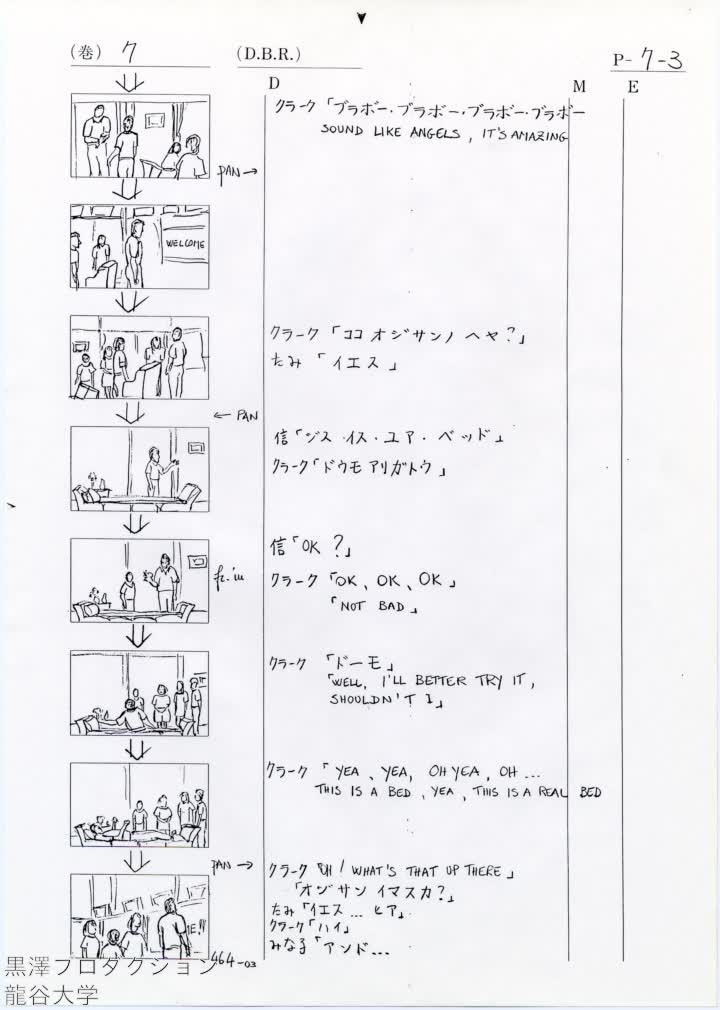 (巻) 7 (D.B.R.) P-7-3
D M E
クラーク「ブラボー・ブラボー・ブラボー・ブラボー
SOUND LIKE ANGELS, IT'S AMAZING
PAN →
WELCOME
クラーク「ココ オジサンノ ヘヤ?」
たみ「イエス」
← PAN
信「ジス・イス・ユア・ベッド」
クラーク「ドウモ アリガトウ」
信「OK ?」
fr. in
クラーク「OK、OK、OK」
「NOT BAD」
クラーク 「ドーモ」
「WELL, I'LL BETTER TRY IT,
SHOULDN'T I」
クラーク 「YEA、YEA, OH YEA, OH ...
THIS IS A BED, YEA, THIS IS A REAL BED
PAN →
クラーク「OH! WHAT'S THAT UP THERE」
「オジサン イマスカ?」
たみ「イエス... ヒア」
クラーク「ハイ」
みな子「アンド...
ME!!
464-03
黒澤プロダクション
龍谷大学